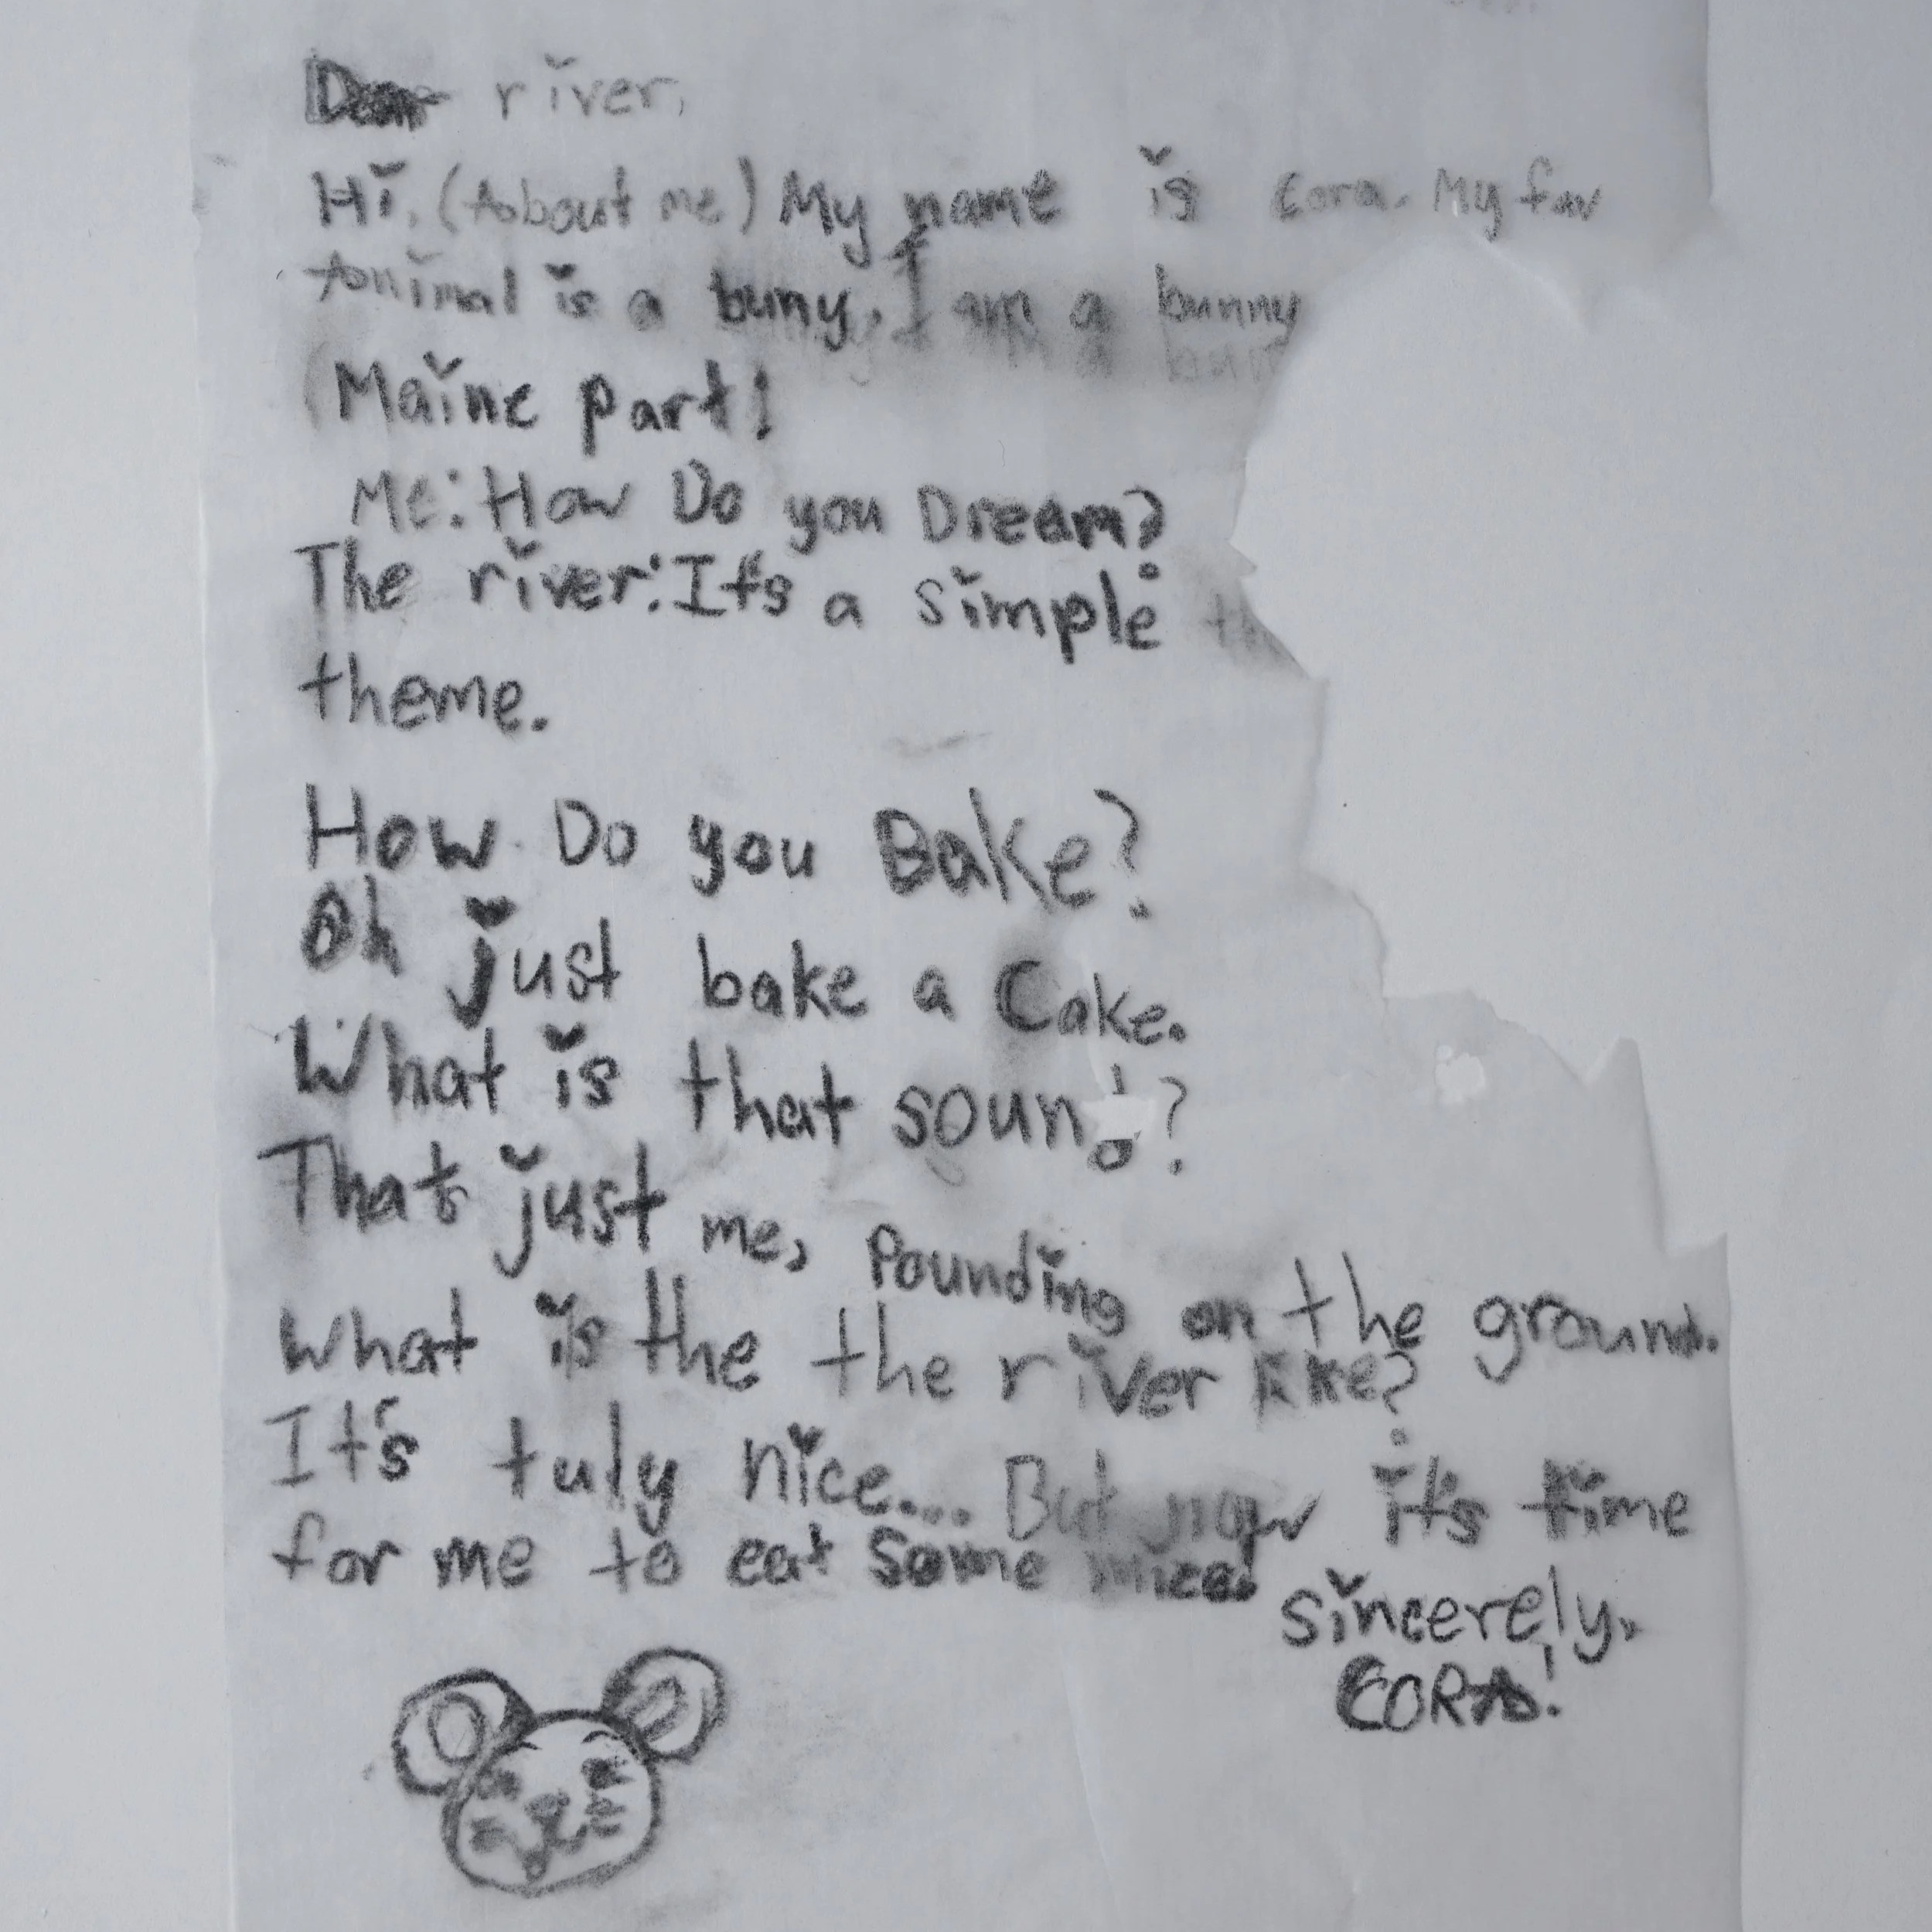 Dear river,
Hi, (About me) My name is Cora. My fav
Animal is a buny, I am a bunny
(Maine part!
Me: How Do you Dream?
The river: It's a simple
theme.
How Do you Bake?
Oh just bake a Cake.
What is that sound?
That's just me, Pounding on the ground.
What is the the river like?
It's tuly nice.... But now it's time
for me to eat some mice.
Sincerely,
CORA!